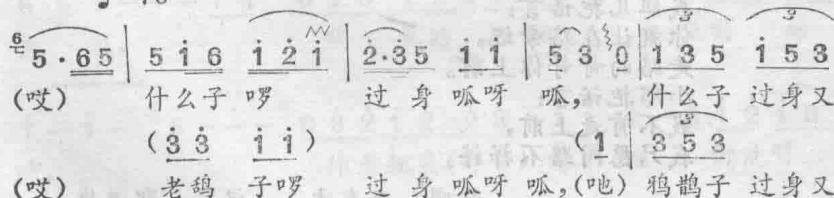 6 5 · 6 5 | 5 1 6 1 2 1 | 2 · 3 5 1 1 | 5 3 0 | 1 3 5 1 5 3
(哎) 什么子 啰 过 身 呱呀 呱, 什么子 过身又
(3 3 1 1) (1 | 3 5 3
(哎) 老鸹 子啰 过 身 呱呀 呱,(吔) 鸦鹊子 过身又